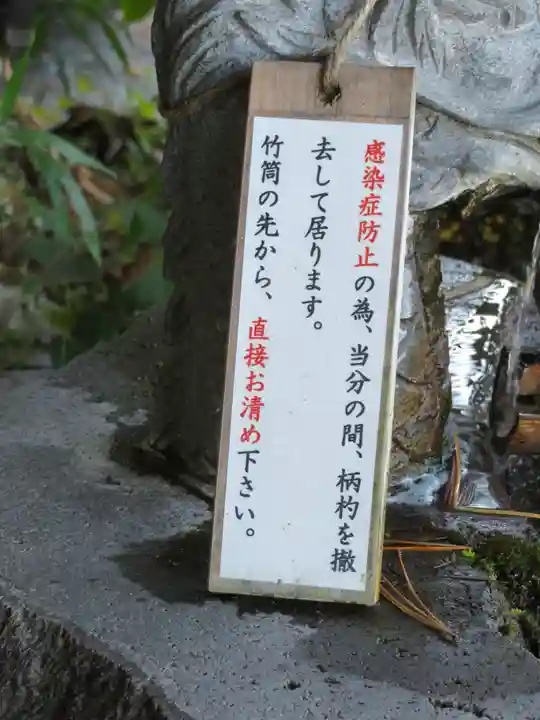 感染症防止の為、当分の間、柄杓を撤
去して居ります。
竹筒の先から、直接お清め下さい。